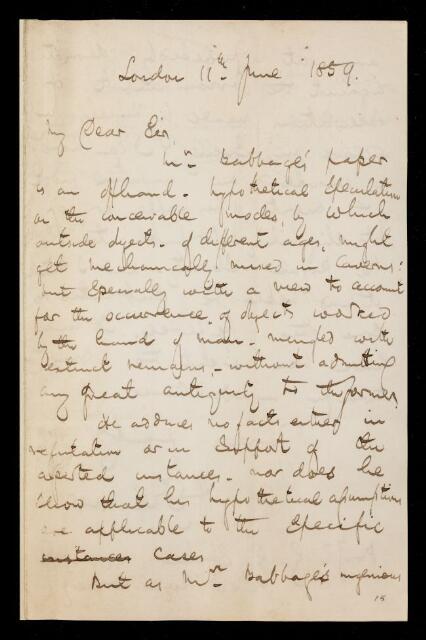 London 11th June 1859.
My Dear Sir,
Mr Babbage's paper
is an offhand - hypothetical Speculation
on the conceivable modes, by which
outside objects - of different ages, might
get mechanically mixed in Caverns:
but Specially with a view to account
for the occurrence, of objects worked
by the hand of man - mingled with
extinct remains, - without admitting
any great antiquity to the former
He adduces no facts either in
refutation or in Support of the
asserted instances - nor does he
Show that his hypothetical assumptions
are applicable to the Specific
instances cases
But as Mr Babbage's ingenious
15